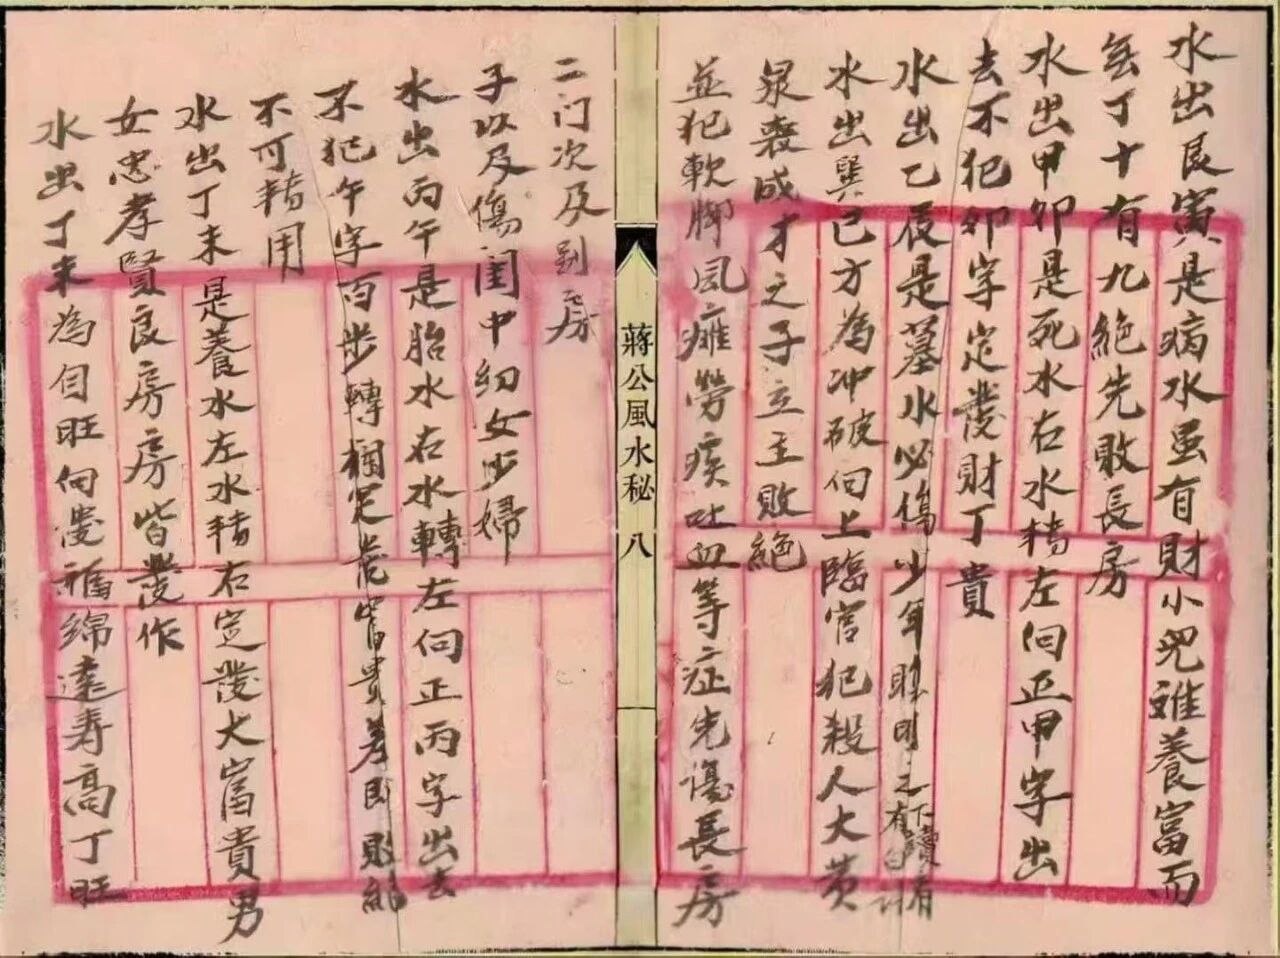 水出艮寅是病水虽有財小兒难養富而
無丁十有九絕先敗長房
水出甲卯是死水右水轉左向正甲字出
去不犯卯字定發財丁貴
水出乙辰是墓水必傷少年聰明之
水出巽巳方為冲破向上臨官犯殺人大黄
泉喪成才之子立主敗絕
並犯軟脚風癱勞疾吐血等症先傷長房
蔣公風水秘 八
二门次及别房
子以及傷閨中幼女少婦
水出丙午是胎水右水轉左向正丙字出去
不犯午字百步轉欄定發富貴差則
不可轉用
水出丁未是養水左水轉右定發大富貴男
女忠孝賢良房房皆發作
水出丁未為自旺向發福綿遠寿高丁旺